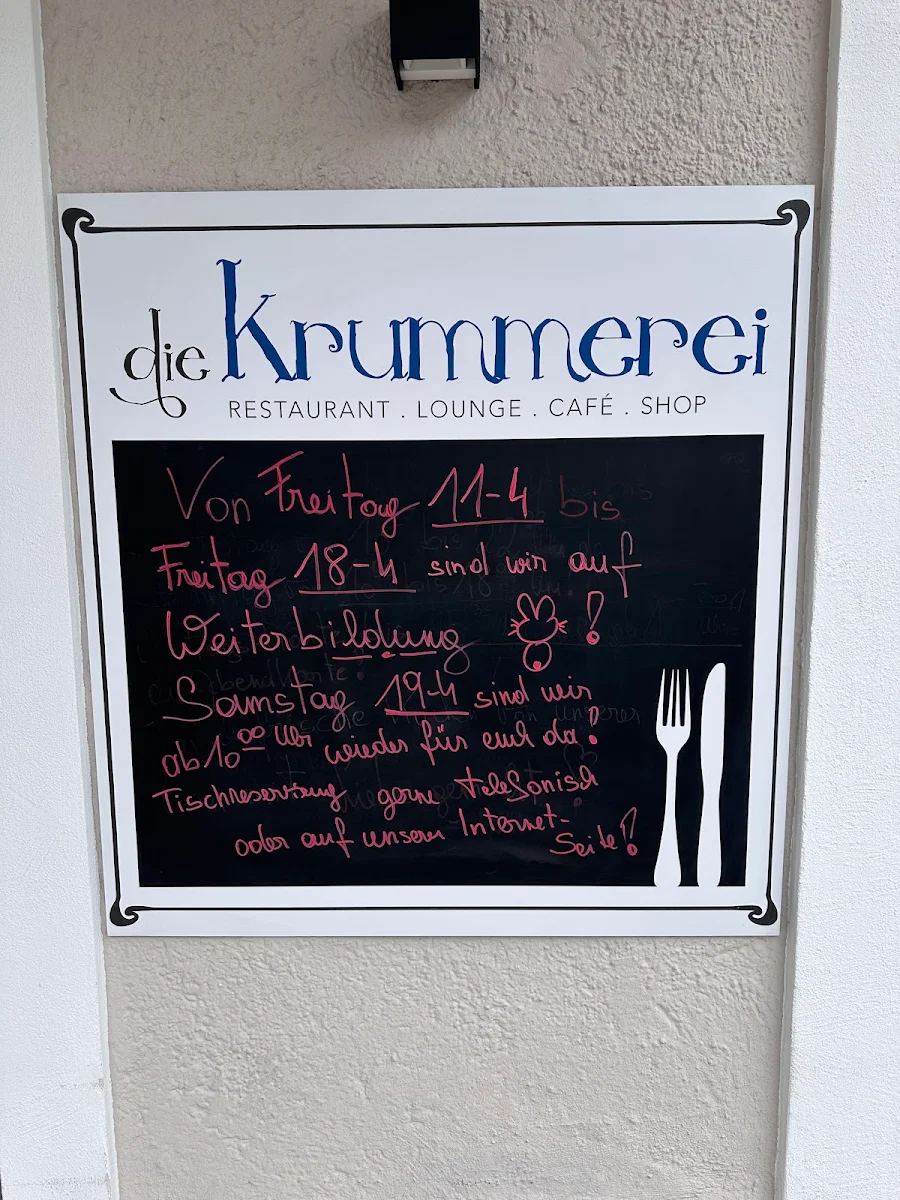 die Krummerei
RESTAURANT . LOUNGE . CAFÉ . SHOP
Von Freitag 11-4 bis
Freitag 18-4 sind wir auf
Weiterbildung !
Samstag 19-4 sind wir
ab 10 00 Uhr wieder für euch da!
Tischreservierung gerne telefonisch
oder auf unserer Internet-
Seite!